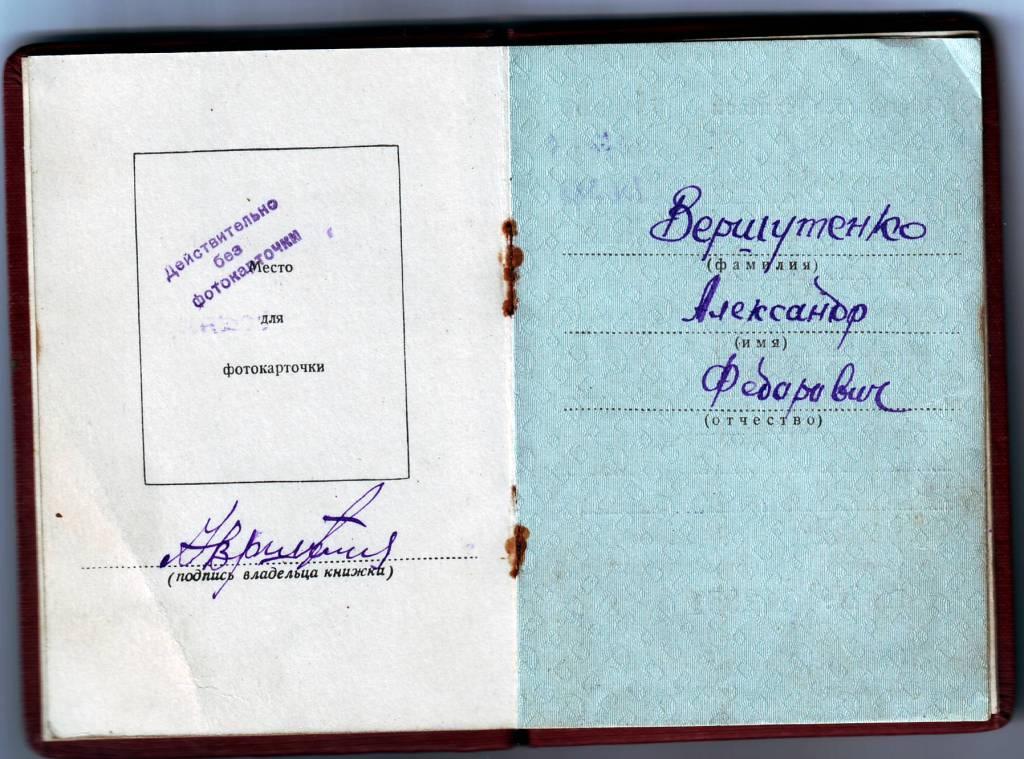 Действительно
без
фотокарточки
Место
для
фотокарточки
(подпись владельца книжки)
Вершутенко
(фамилия)
Александр
(имя)
Федарович
(отчество)